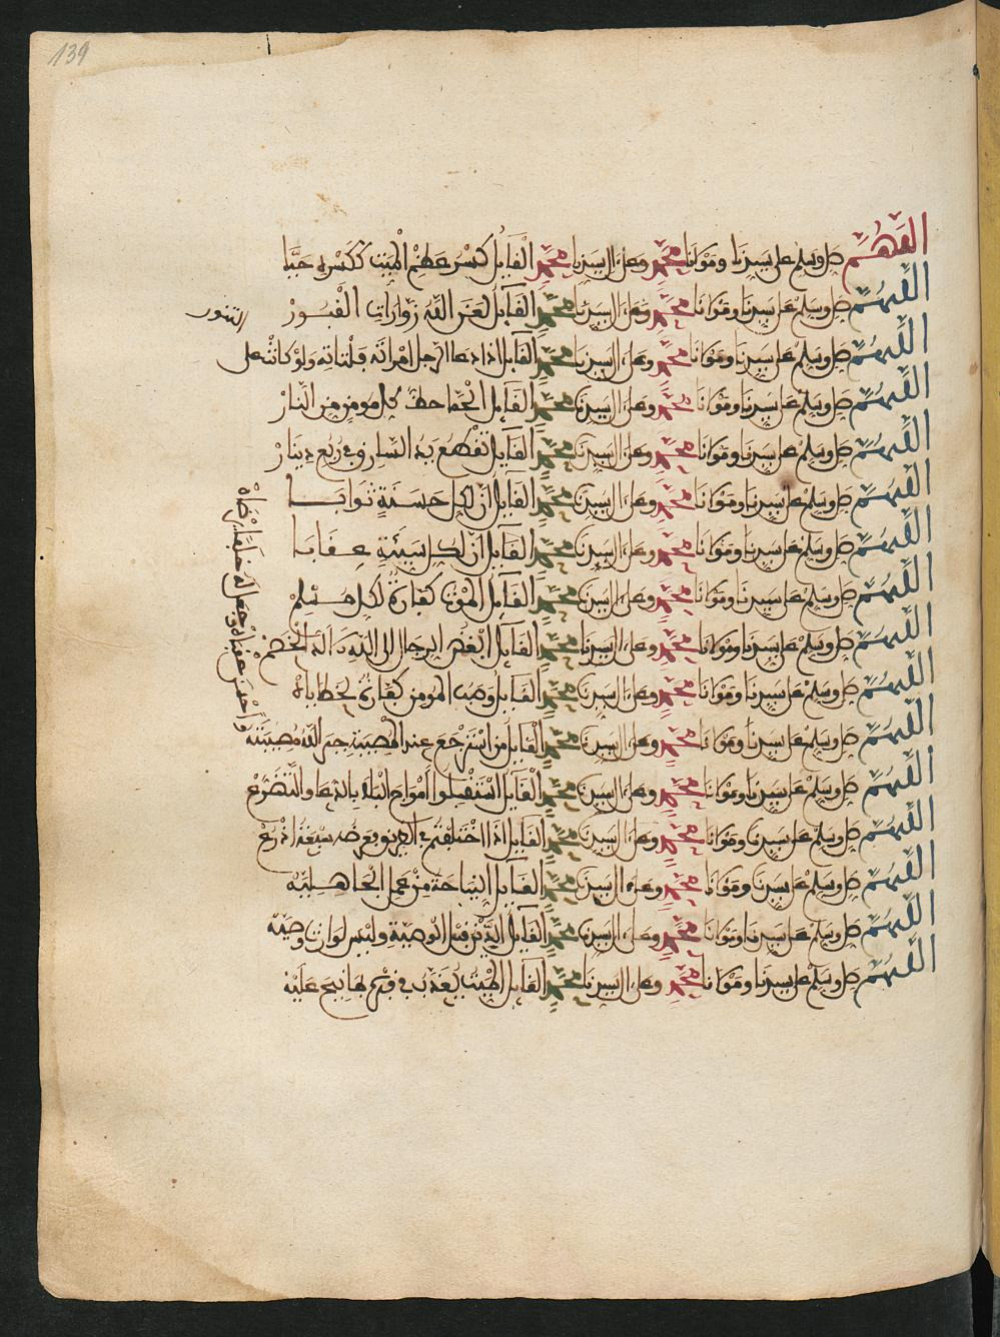 139
اللهم صل وسلم على سيدنا ومولانا محمد وعلى ءال سيدنا محمد القايل كسر عظم الميت ككسره حيا
اللهم صل وسلم على سيدنا ومولانا محمد وعلى ءال سيدنا محمد القايل لعن الله زوارات القبور
اللهم صل وسلم على سيدنا ومولانا محمد وعلى ءال سيدنا محمد القايل اذا دعا الرجل امراته فلتاته ولو كانت على
التنور
اللهم صل وسلم على سيدنا ومولانا محمد وعلى ءال سيدنا محمد القايل الحما حظ كل مومن من النار
اللهم صل وسلم على سيدنا ومولانا محمد وعلى ءال سيدنا محمد القايل تقطع يد السارق في ربع دينار
اللهم صل وسلم على سيدنا ومولانا محمد وعلى ءال سيدنا محمد القايل ان لكل حسنة ثوابا
اللهم صل وسلم على سيدنا ومولانا محمد وعلى ءال سيدنا محمد القايل ان لكل سيئة عقابا
اللهم صل وسلم على سيدنا ومولانا محمد وعلى ءال سيدنا محمد القايل الموت كفارة لكل مسلم
اللهم صل وسلم على سيدنا ومولانا محمد وعلى ءال سيدنا محمد القايل ابغض الرجال الى الله الالد الخصم
اللهم صل وسلم على سيدنا ومولانا محمد وعلى ءال سيدنا محمد القايل وصب المومن كفارة لخطاياه
اللهم صل وسلم على سيدنا ومولانا محمد وعلى ءال سيدنا محمد القايل من استرجع عند المصيبة جبر الله مصيبته
واحسن عقباه وجعل له خلفا يرضاه
اللهم صل وسلم على سيدنا ومولانا محمد وعلى ءال سيدنا محمد القايل استقبلوا امواج البلاء بالدعا والتضرع
اللهم صل وسلم على سيدنا ومولانا محمد وعلى ءال سيدنا محمد القايل اذا اختلفتم في الطريق فعرضه سبعة اذرع
اللهم صل وسلم على سيدنا ومولانا محمد وعلى ءال سيدنا محمد القايل النياحة من عمل الجاهلية
اللهم صل وسلم على سيدنا ومولانا محمد وعلى ءال سيدنا محمد القايل الدين قبل الوصية وليس لوارث وصية
اللهم صل وسلم على سيدنا ومولانا محمد وعلى ءال سيدنا محمد القايل الميت يعذب في قبره بما نيح عليه